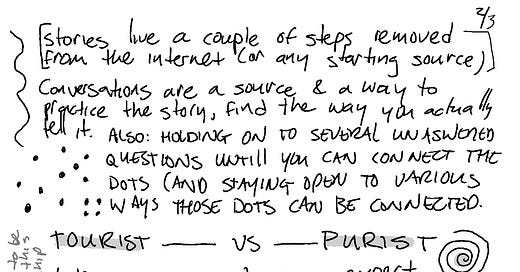 2/3
[stories live a couple of steps removed
from the internet (or any starting source)]
Conversations are a source & a way to
practice the story, find the way you actually
tell it. ALSO: HOLDING ON TO SEVERAL UNASWERED
QUESTIONS UNTILL YOU CAN CONNECT THE
DOTS (AND STAYING OPEN TO VARIOUS
WAYS THOSE DOTS CAN BE CONNECTED.
TOURIST — VS — PURIST
to be
this